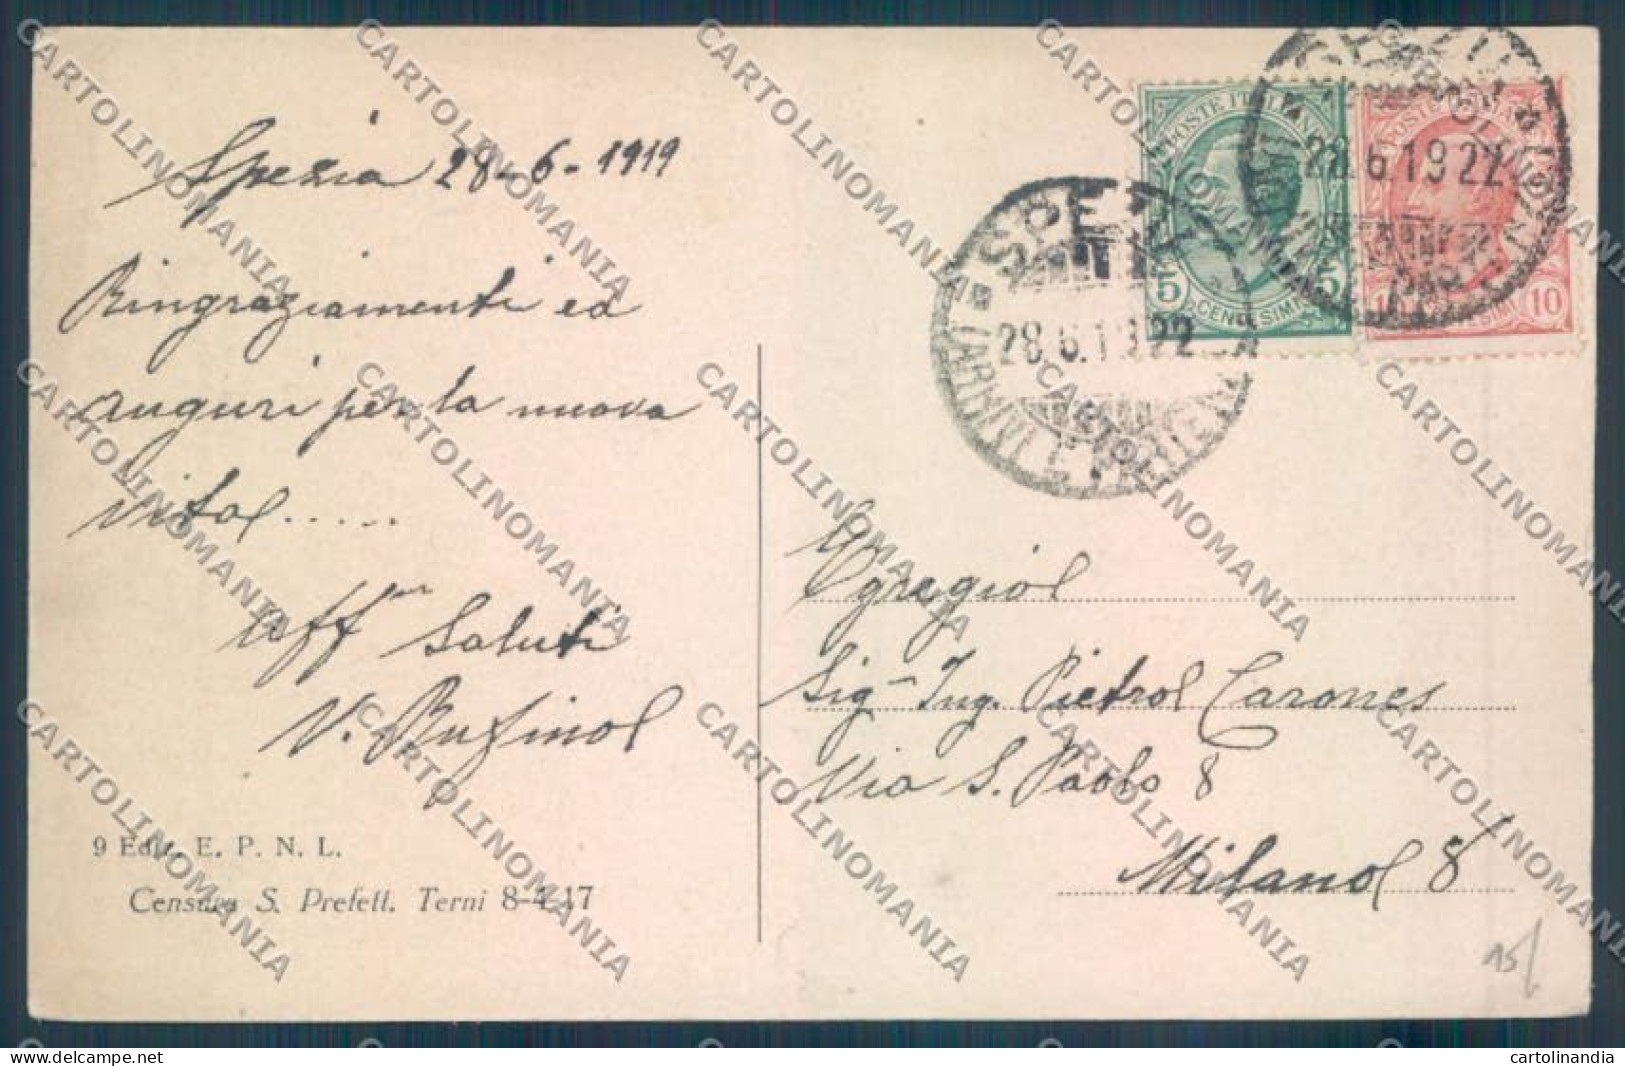 Spezia 28-6-1919
Ringraziamenti ed
auguri per la nuova
vita.....
Aff.mi Saluti
V. Rufino
9 Ediz. E. P. N. L.
Censura S. Prefett. Terni 8-4-17
POSTE ITALIANE
5 5
CENTESIMI
POSTE
10
28.6.1922
SPEZIA
28.6.1922
(ARRIVI E PARTENZE)
Egregio
Sig. Ing. Pietro Carones
Via S. Paolo 8
Milano 8
15/
CARTOLINOMANIA
cartolinandia